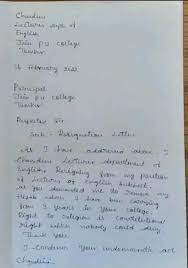 Chandini
Lecturer dept. of
English
Jain pu college
Tumkur
16 February 2022
Principal
Jain pu college
Tumkur
Respected Sir
Sub:- Resignation Letter
As I have addressed above I
Chandini Lecturer department of
English Resigning from my position
of Lecturer of English Subject,
as you demanded me to Remove my
Hijab which I have been carrying
from 3 years in your college.
Right to religion is constitutional
Right which nobody could deny.
Thank You
I Condemn your undemocratic act
Chandini